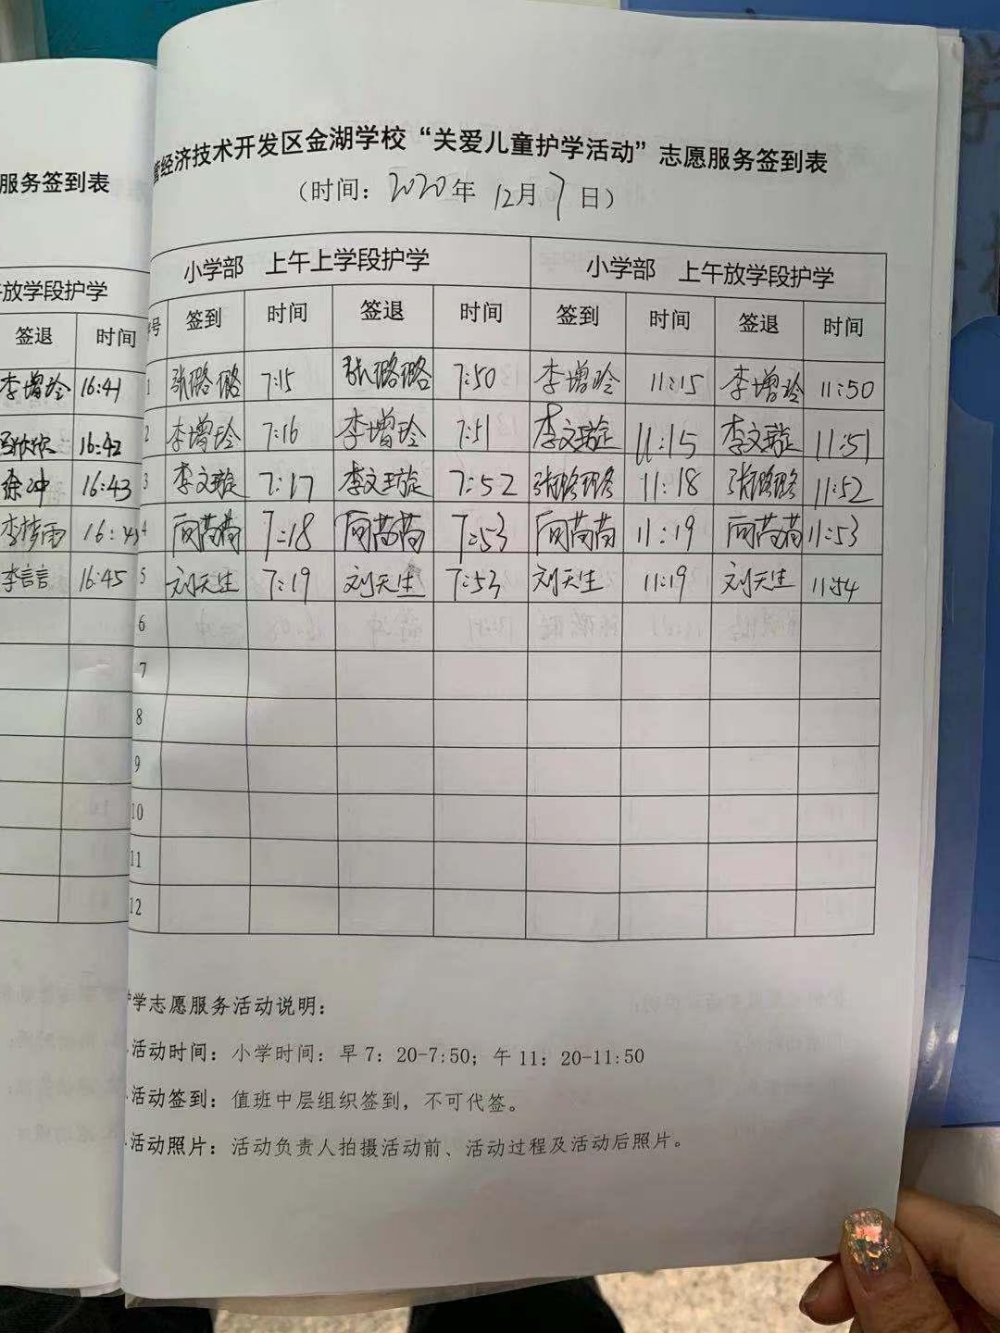 服务签到表
放学段护学
签退 时间
李增玲 16:41
16:42
徐冲 16:43
李梦雨 16:43
李言言 16:45
经济技术开发区金湖学校“关爱儿童护学活动”志愿服务签到表
（时间：2020年 12月7日）
小学部 上午上学段护学 小学部 上午放学段护学
号 签到 时间 签退 时间 签到 时间 签退 时间
1 张璐璐 7:15 张璐璐 7:50 李增玲 11:15 李增玲 11:50
2 李增玲 7:16 李增玲 7:51 李文璇 11:15 李文璇 11:51
3 李文璇 7:17 李文璇 7:52 张璐璐 11:18 张璐璐 11:52
4 闫苗苗 7:18 闫苗苗 7:53 闫苗苗 11:19 闫苗苗 11:53
5 刘天生 7:19 刘天生 7:53 刘天生 11:19 刘天生 11:54
6
7
8
9
10
11
12
护学志愿服务活动说明：
活动时间：小学时间：早7：20-7:50；午11：20-11:50
活动签到：值班中层组织签到，不可代签。
活动照片：活动负责人拍摄活动前、活动过程及活动后照片。